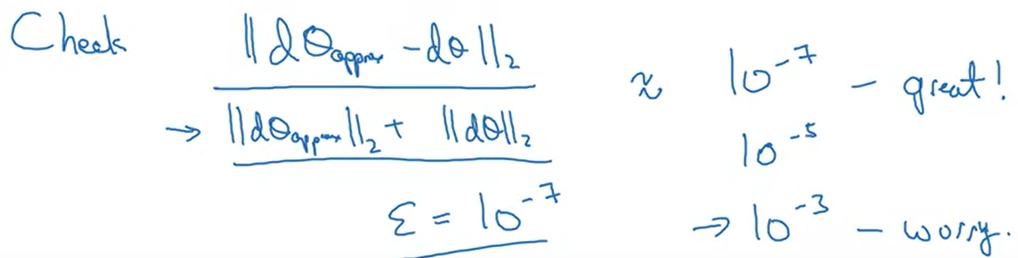 Check ‖dθ_approx - dθ‖₂
→ ‖dθ_approx‖₂ + ‖dθ‖₂
≈ 10⁻⁷ - great!
10⁻⁵
ε = 10⁻⁷
→ 10⁻³ - worry.